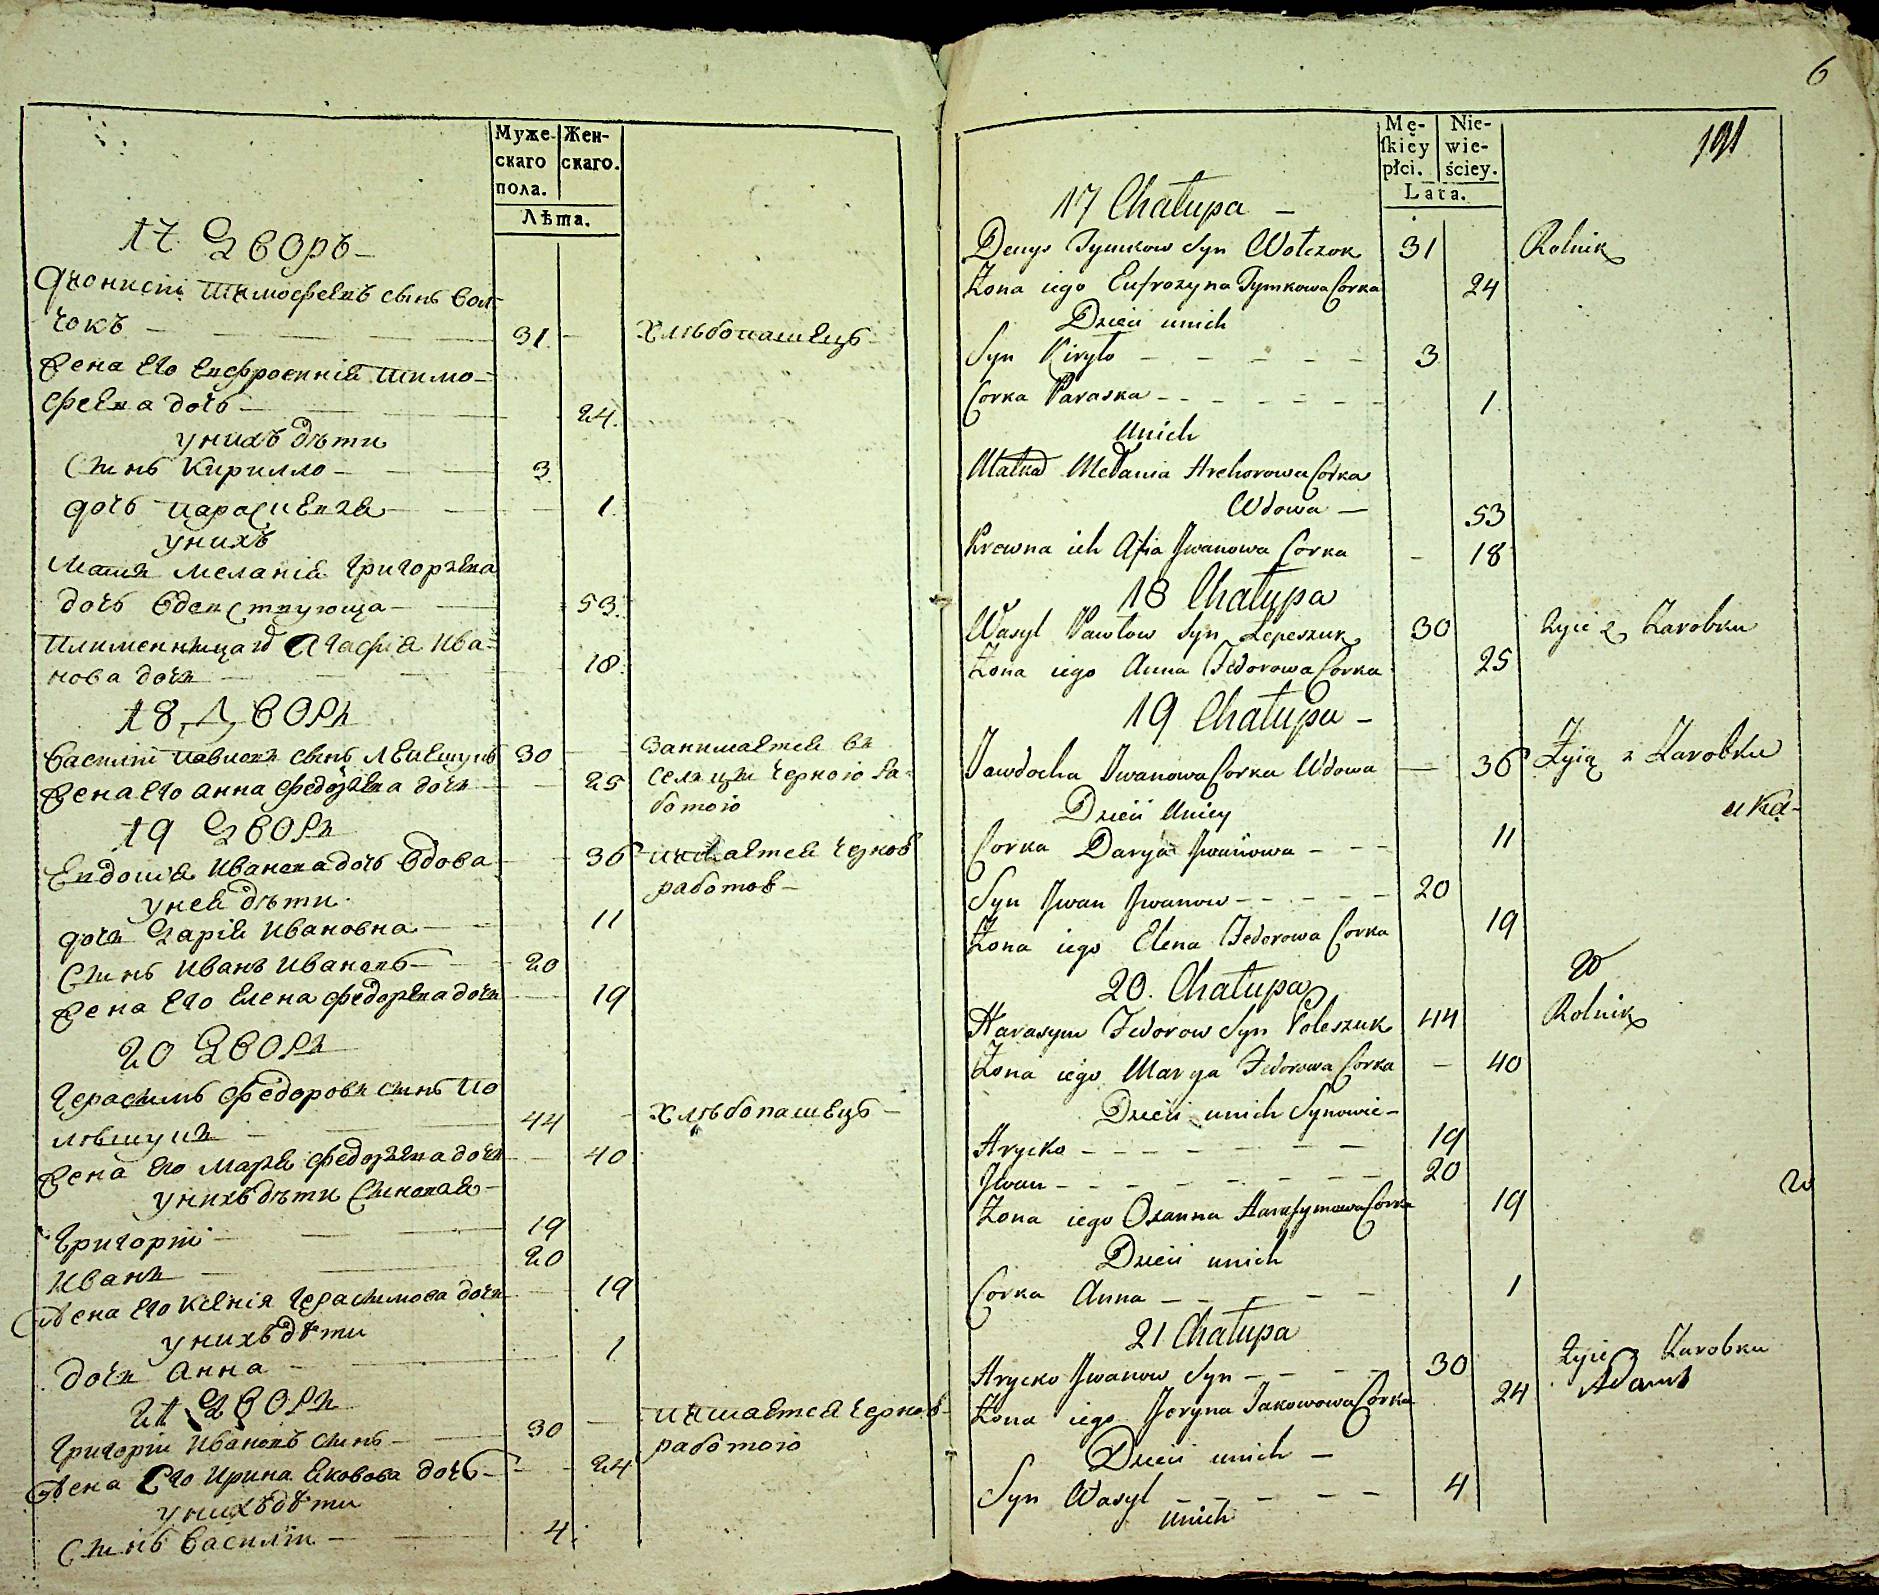 Муже-
скаго
пола.
Жен-
скаго.
Лѣта.
17 Дворъ
Дионисій Тимофеевъ сынъ Вол-
чокъ 31 Хлѣбопашецъ
Жена Его Евфросинія Тимо-
феева дочь 24
У нихъ дѣти
Сынъ Кирилло 3
дочь Парасцевга 1
У нихъ
Матъ Меланія Григорьева
дочь вдовствующа 53
племенница ю Агафія Ива-
нова дочъ 18
18 Дворъ
Василій Павловъ сынъ Лепешукъ 30 занимается въ
Жена Его Анна Федорьева дочъ 25 селъцы черною ра-
ботою
19 Дворъ
Евдокія Иванова дочь вдова 36 питается черною
У ней дѣти работою
дочъ Дарія Ивановна 11
Сынъ Иванъ Ивановъ 20
Жена Его Елена Федорьева дочъ 19
20 Дворъ
Герасимъ Федоровъ сынъ По
лѣшукъ 44 Хлѣбопашецъ
Жена Его Марья Федорьева дочъ 40
У нихъ дѣти Сыновья
Григорій 19
Иванъ 20
Жена Его Ксенія Герасимова дочъ 19
У нихъ дѣти
дочъ Анна 1
21 Дворъ
Григорій Ивановъ сынъ 30 питается черною
Жена Его Ирина Яковова дочь 24 работою
У нихъ дѣти
Сынъ Василій 4
6
191
Mę-
skiey
płci.
Nie-
wie-
ściey.
Lata.
17 Chałupa
Denys Tymkow Syn Wołczok 31 Rolnik
Żona iego Eufrozyna Tymkowa Corka 24
Dzieci u nich
Syn Kiryło 3
Corka Paraska 1
U nich
Matka Mełania Hrehorowa Corka
Wdowa 53
Krewna ich Afia Jwanowa Corka 18
18 Chałupa
Wasyl Pawłow Syn Lepeszuk 30 Żyie z Zarobku
Żona iego Anna Fedorowa Corka 25
19 Chałupa
Jawdocha Jwanowa Corka Wdowa 36 Żyią z Zarobku
Dzieci u niey
Corka Darya Jwanowa 11
Syn Jwan Jwanow 20
Żona iego Elena Fedorowa Corka 19
20. Chałupa
Harasym Fedorow Syn Poleszuk 44 Rolnik
Żona iego Marya Fedorowa Corka 40
Dzieci u nich Synowie
Hrycko 19
Jwan 20
Żona iego Oxanna Harasymowa Corka 19
Dzieci u nich
Corka Anna 1
21 Chałupa
Hrycko Jwanow Syn 30 Żyie z Zarobku
Żona iego Jeryna Jakowowa Corka 24
Dzieci u nich
Syn Wasyl 4
u nich